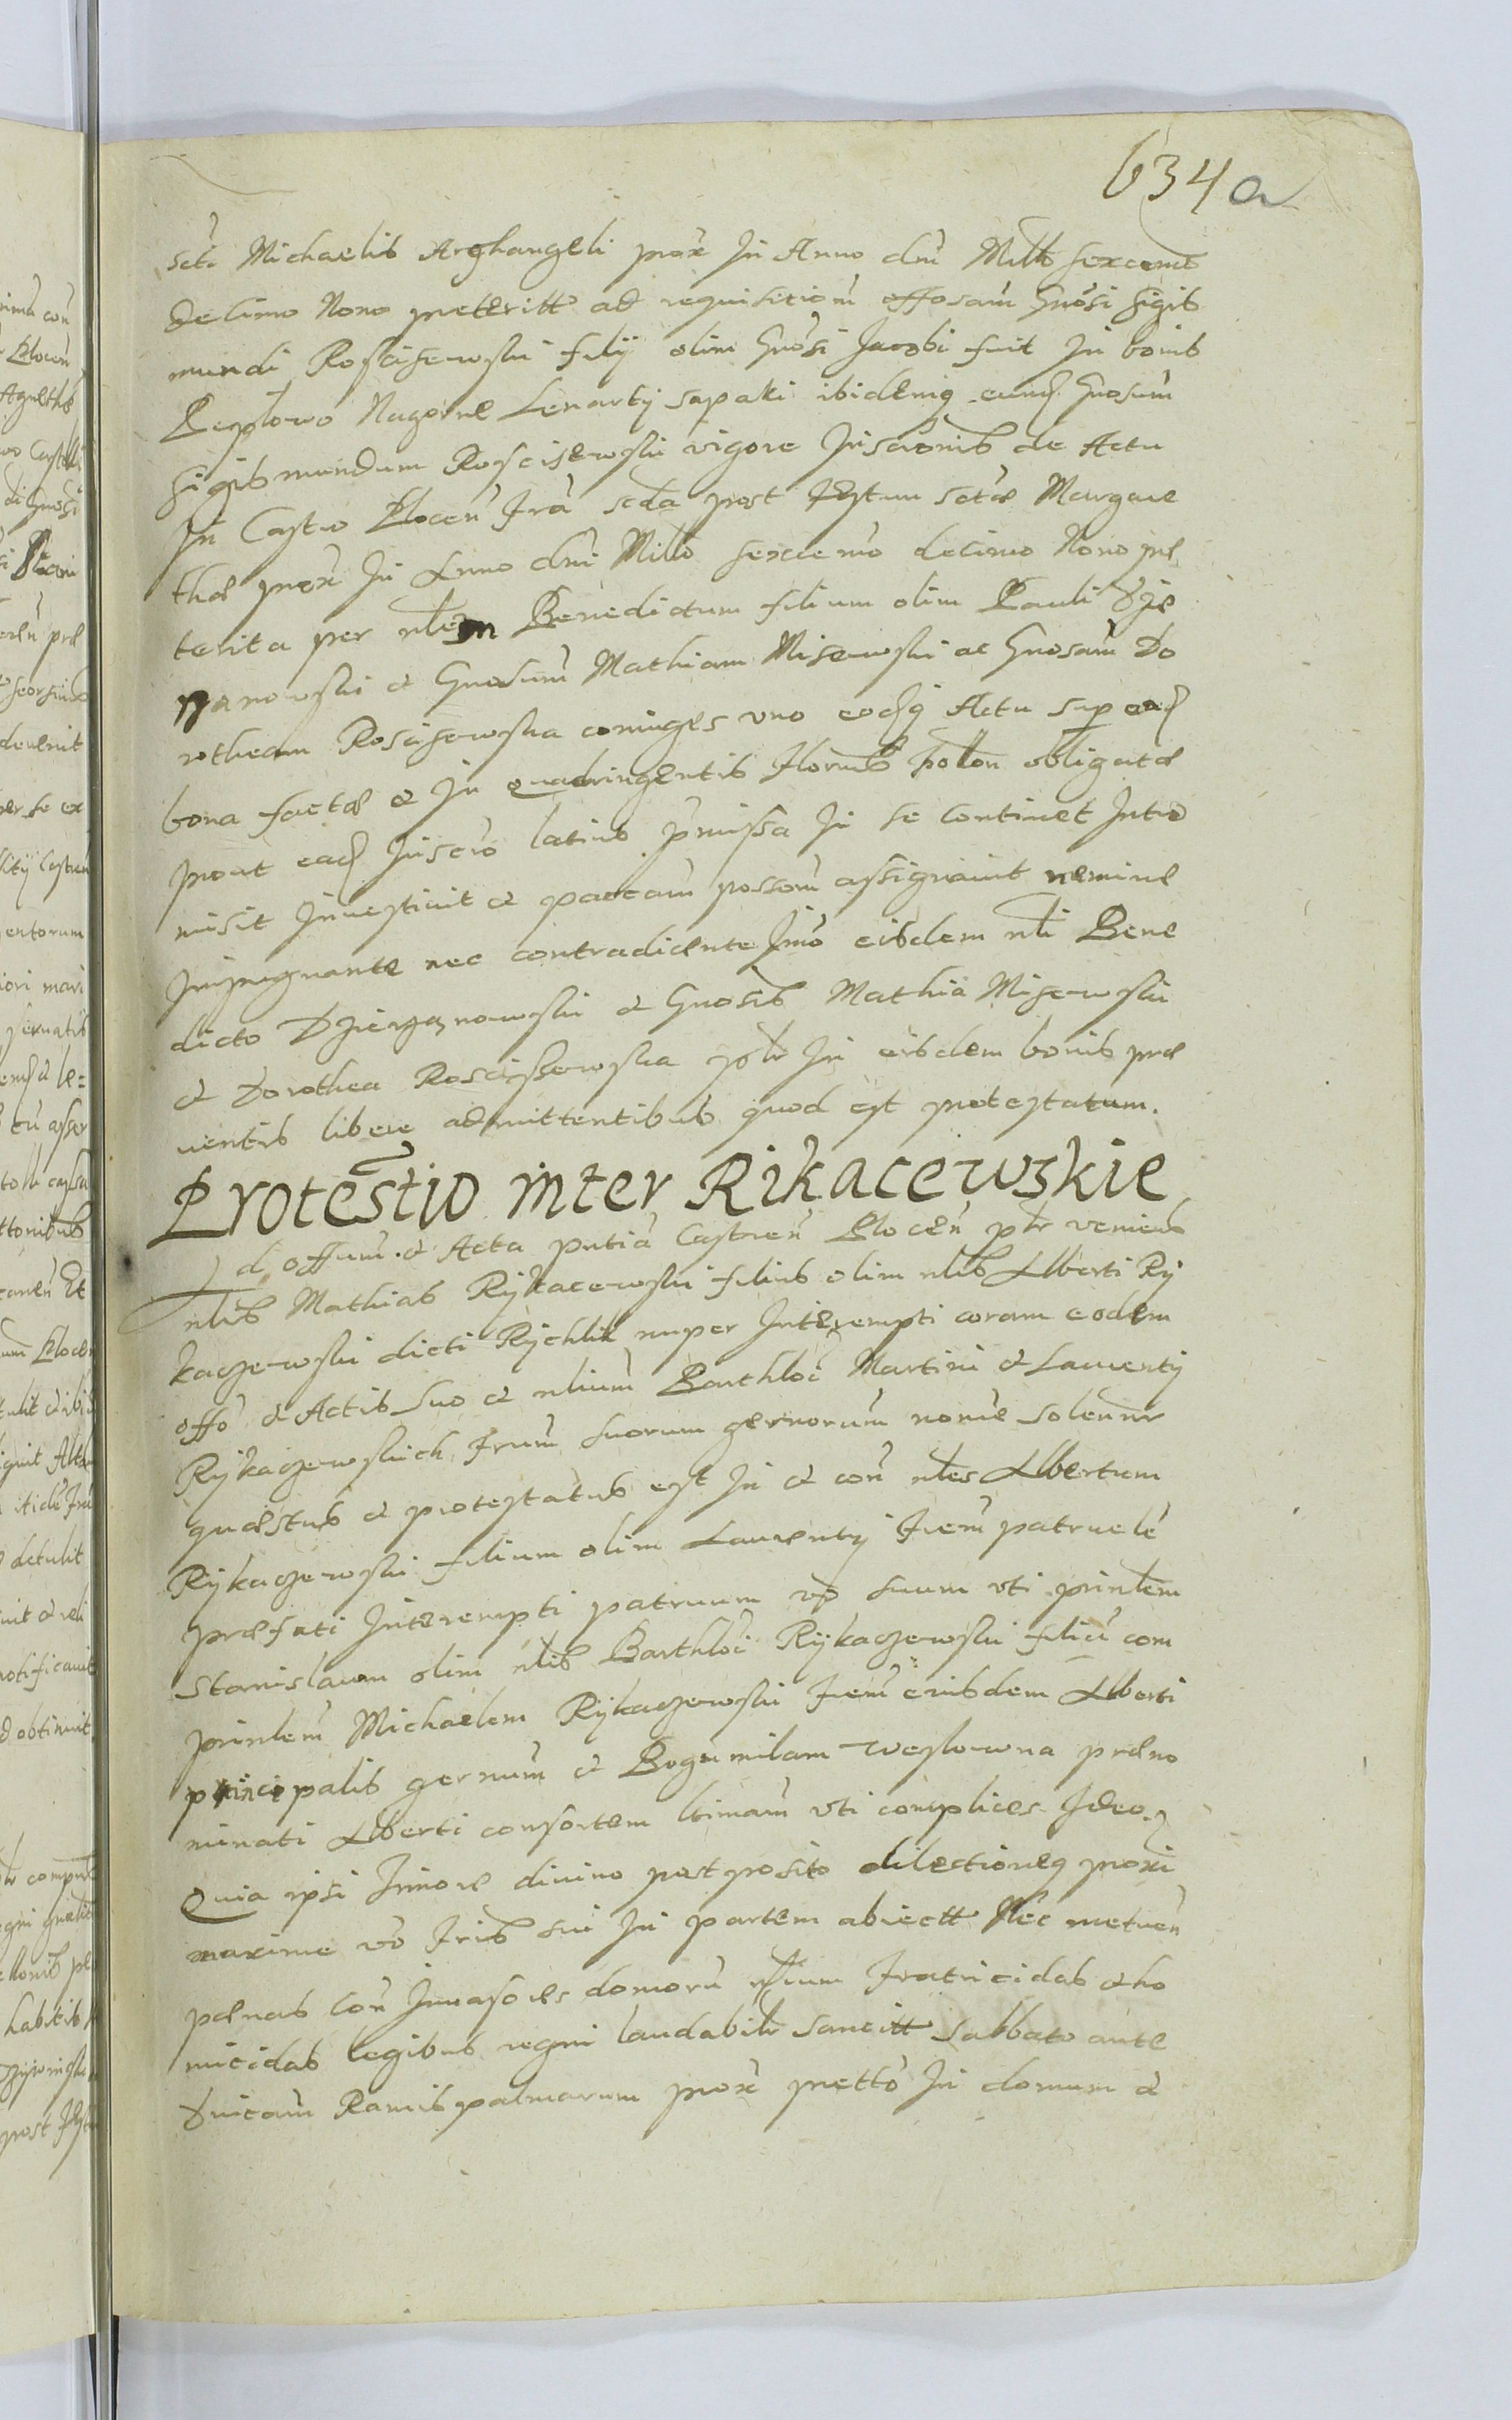 634 a
scti Michaelis Archangeli prox In Anno dni Millo sexcento
decimo Nono preteritt ad requisitiom offosam Gnosi Sigis
mundi Rosciszewski filij olim Gnosi Jacobi fuit In bonis
Nagorne Lenarty sapaki ibidemq eund Gnosum
Sigismundum Roscisewski vigore Inscrionis de Actu
In Castro Plocen fria scda post Festum sctae Margare
thae prox In Anno dni Millo sexcento decimo Nono pre
terita per nlem Benedictum filium olim Pauli Dzie
rzanowski et Gnosum Mathiam Misewski ac Gnosam Do
rotheam Roscisewska coniuges uno eodq Actu sup ead
bona factae et In quadringentis florenis polon obligatae
prout ead Inscrio latius pmissa In se continet Intro
misit Investivit et pactam possom assignavit nemine
Impugnante nec contradicente Imo eisdem nli Bene
dicto Dzierzanowski et Gnosis Mathia Misewski
et Dorothea Rosciszewska pstr In eisdem bonis prae
ventis libere admittentibus quod est protestatum.
Protestio inter Rikacewskie
Ad offum et Acta pntia Castren Plocen pltr veniens
nlis Mathias Rykacewski filius olim nlis Alberti Ry
kaczewski dicti Rychlik nuper Interempti coram eodem
offo et Actis suo et nlium Barthloi Martini et Laurenty
Rykaczewskich frum suorum gernorum nomine solennr
quaestus et protestatus est In et con nles Albertum
Rykaczewski filium olim Laurenty frem patruele
praefati Interempti patruum vo suum uti prinlem
Stanislaum olim nlis Barthloi Rykaczewski filiu com
prinlem Michaelem Rykaczewski frem eiusdem Alberti
principalis gernum et Bogumilam Weslowna praeno
minati Alberti consortem ltimam uti complices Ideo
Quia ipsi timore divino postposito dilectioneq proxi
maxime vo fris sui In partem abiectt Nec metuen
paenas con Invasores domoru nlium fratricidas et ho
micidas legibus regni laudabilr sancitt sabbato ante
dnicam Ramis palmarum prox pretto In domum et